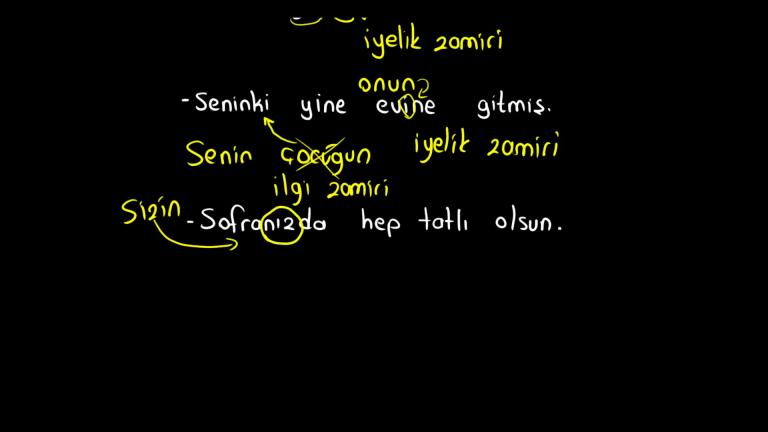 iyelik zamiri
onun
-Seninki yine evine gitmiş.
Senin çocuğun iyelik zamiri
ilgi zamiri
Sizin
-Sofranızda hep tatlı olsun.